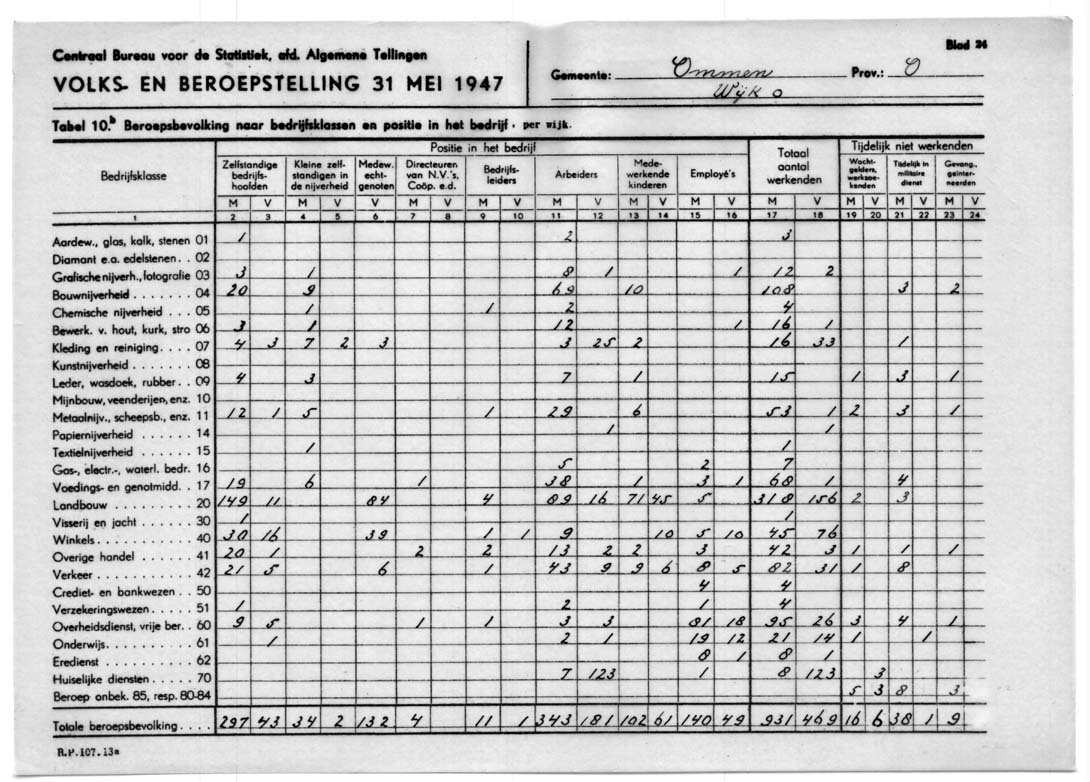 Centraal Bureau voor de Statistiek, afd. Algemene Tellingen
Blad 24
VOLKS- EN BEROEPSTELLING 31 MEI 1947
Gemeente: Ommen Prov.: O
Wijk o
Tabel 10.b Beroepsbevolking naar bedrijfsklassen en positie in het bedrijf. per wijk.
Bedrijfsklasse
Positie in het bedrijf
Totaal aantal werkenden
Tijdelijk niet werkenden
Zelfstandige bedrijfshoofden
Kleine zelfstandigen in de nijverheid
Medew. echtgenoten
Directeuren van N.V.'s, Coöp. e.d.
Bedrijfsleiders
Arbeiders
Medewerkende kinderen
Employé's
Wachtgelders, werkzoekenden
Tijdelijk in militaire dienst
Gevang., geïnterneerden
M V M V V M V M V M V M V M V M V M V M V M V
1 2 3 4 5 6 7 8 9 10 11 12 13 14 15 16 17 18 19 20 21 22 23 24
Aardew., glas, kalk, stenen 01 1 2 3
Diamant e.a. edelstenen. . 02
Grafische nijverh., fotografie 03 3 1 8 1 1 12 2
Bouwnijverheid . . . . . . . 04 20 9 69 10 108 3 2
Chemische nijverheid . . . 05 1 1 2 4
Bewerk. v. hout, kurk, stro 06 3 1 12 1 16 1
Kleding en reiniging. . . . 07 4 3 7 2 3 3 25 2 16 33 1
Kunstnijverheid . . . . . . . 08
Leder, wasdoek, rubber. . 09 4 3 7 1 15 1 3 1
Mijnbouw, veenderijen, enz. 10
Metaalnijv., scheepsb., enz. 11 12 1 5 1 29 6 53 1 2 3 1
Papiernijverheid . . . . . . 14 1 1
Textielnijverheid . . . . . . 15 1 1
Gas-, electr.-, waterl. bedr. 16 5 2 7
Voedings- en genotmidd. . 17 19 6 1 38 1 3 1 68 1 4
Landbouw . . . . . . . . . 20 149 11 84 4 89 16 71 45 5 318 156 2 3
Visserij en jacht . . . . . . 30 1 1
Winkels . . . . . . . . . . . 40 30 16 39 1 1 9 10 5 10 45 76
Overige handel . . . . . . 41 20 1 2 2 13 2 2 3 42 3 1 1 1
Verkeer . . . . . . . . . . . 42 21 5 6 1 43 9 9 6 8 5 82 31 1 8
Crediet- en bankwezen . . 50 4 4
Verzekeringswezen. . . . . 51 1 2 1 4
Overheidsdienst, vrije ber. . 60 9 5 1 1 3 3 81 18 95 26 3 4 1
Onderwijs. . . . . . . . . . 61 1 2 1 19 12 21 14 1 1
Eredienst . . . . . . . . . . 62 8 1 8 1
Huiselijke diensten . . . . . 70 7 123 1 8 123 3
Beroep onbek. 85, resp. 80-84 5 3 8 3
Totale beroepsbevolking . . . . 297 43 34 2 132 4 11 1 343 181 102 61 140 49 931 469 16 6 38 1 9
R.P.107.13a